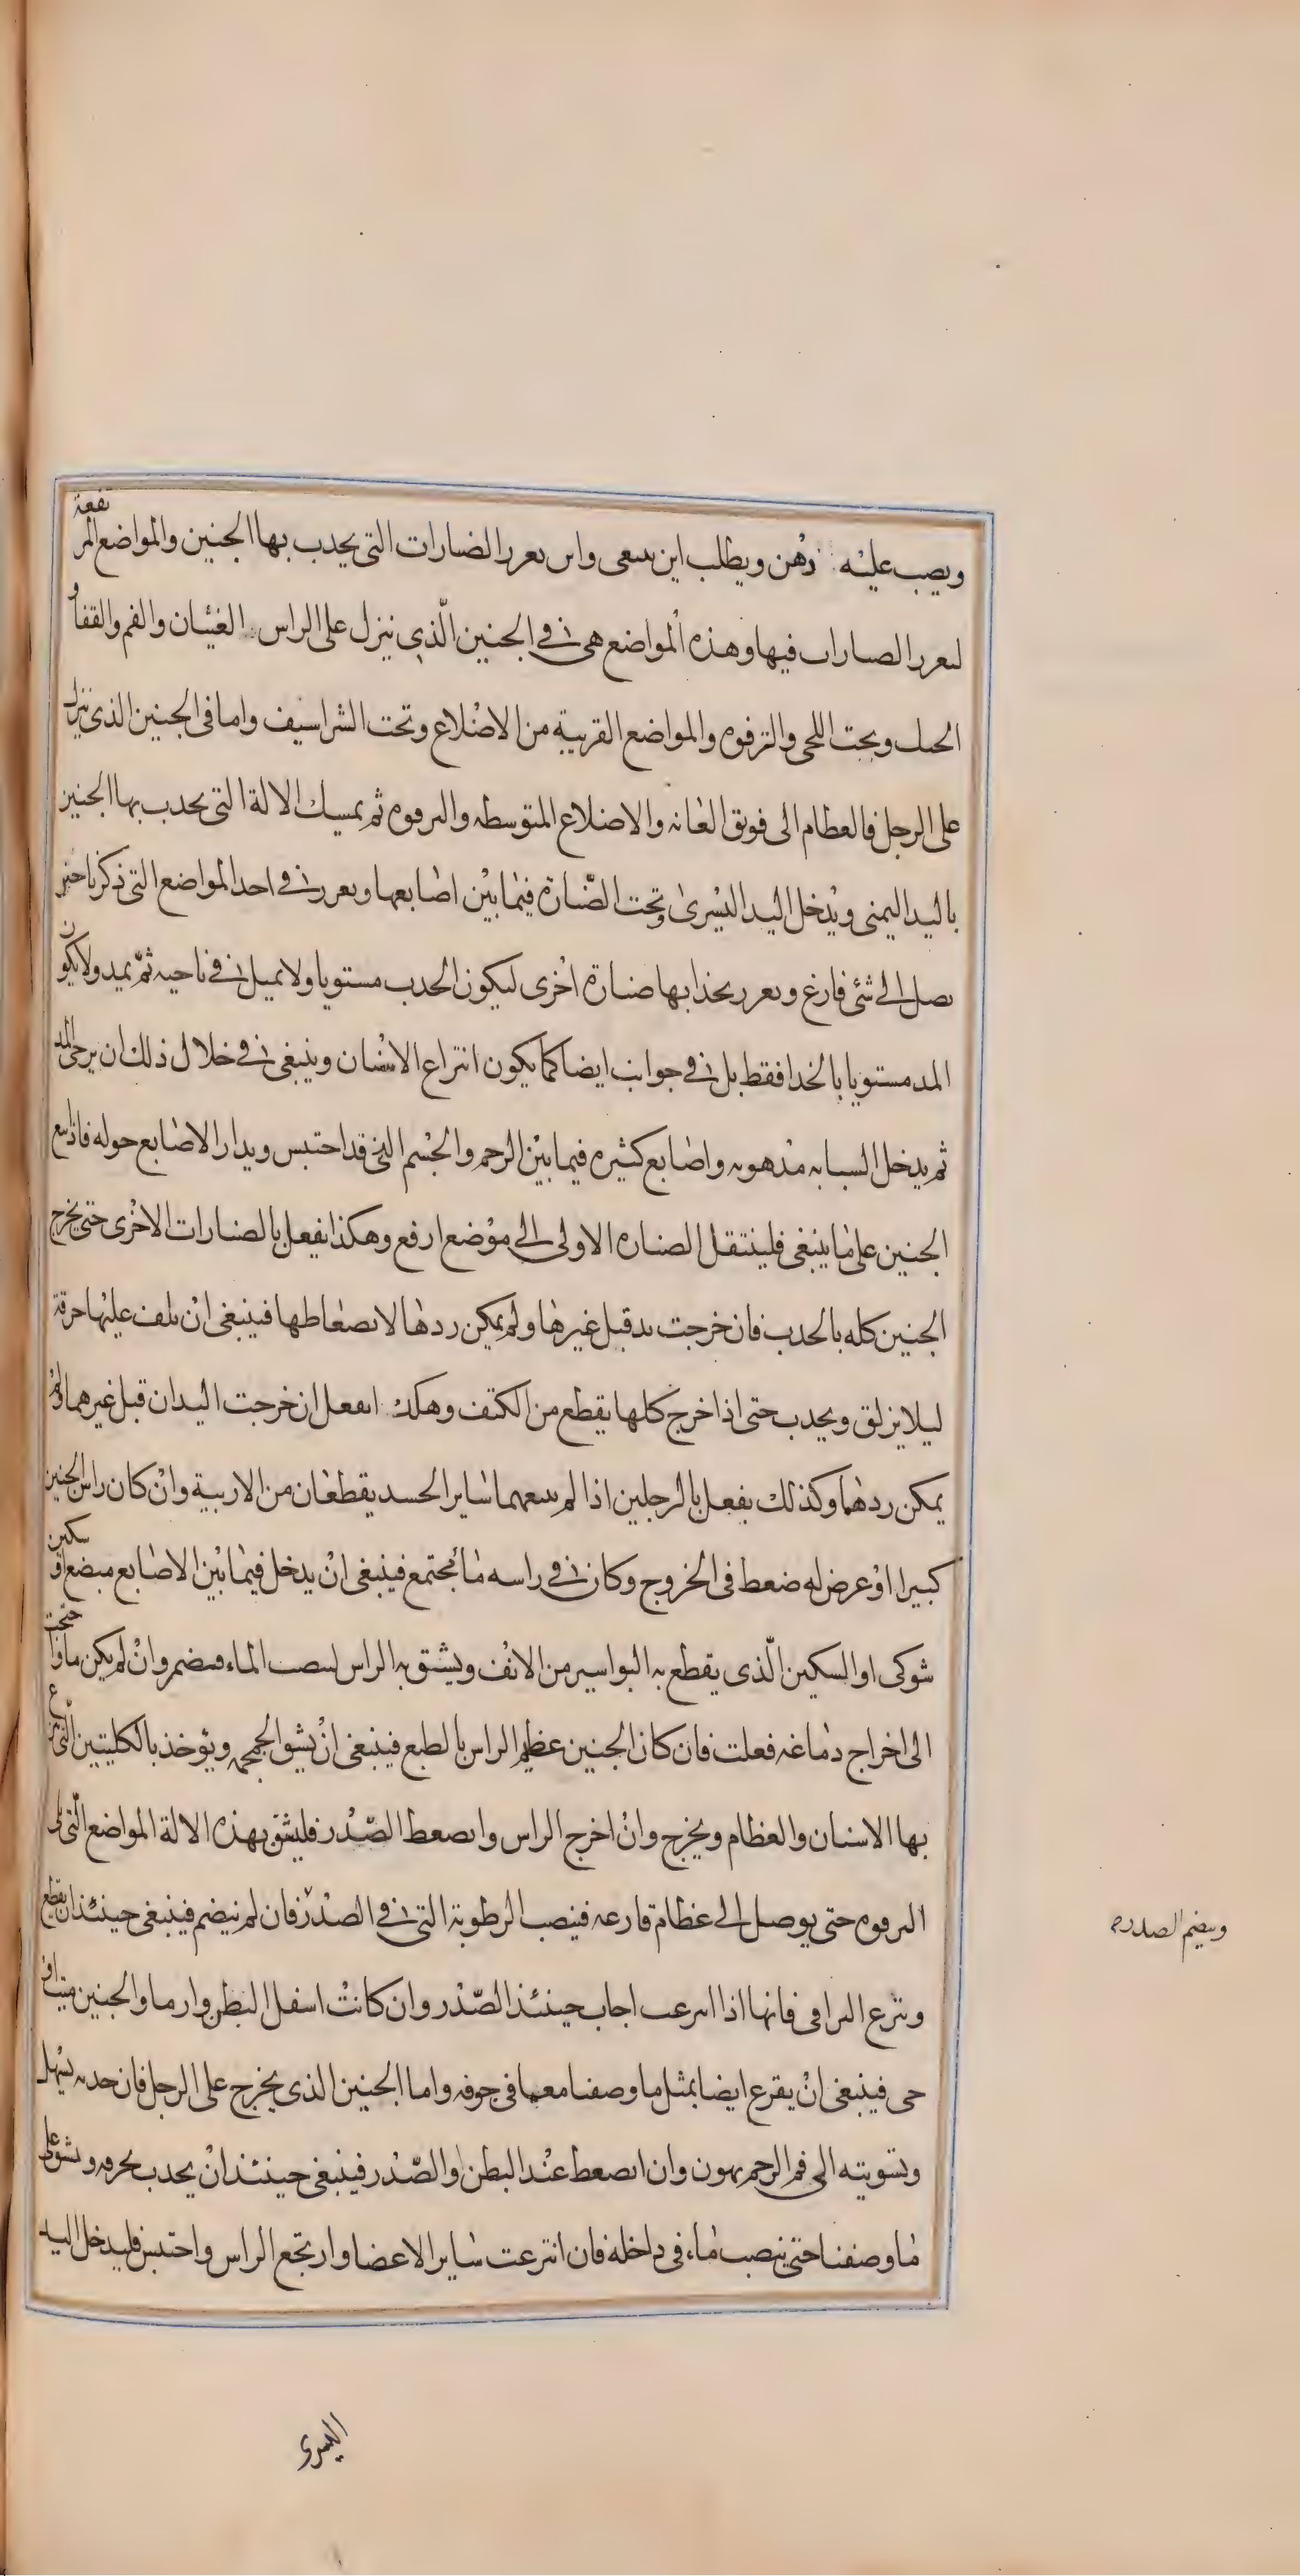 ويصب عليه دهن ويطلب اين ىىبغى واىں ىعرر الضنارات التى يجدب بها الجنين والمواضع المرتفعة
لىعرر الصنارات فيها وهذه المواضع هى فى الجنين الذى ينزل على الراس العينان والفم والقفا و
الحنك وتحت اللحى والترقوه والمواضع القريبة من الاضلاع وتحت الشراسيف واما فى الجنين الذى ينزل
على الرجل فالعظام التى فويق العانه والاضلاع المتوسطه والترقوه ثم يمسك الالة التى يجدب بها الجنين
باليد اليمنى ويدخل اليد اليسرى وتحت الضنارة فيما بين اصابعها ويعرر فى احد المواضع التى ذكرنا حتى
يصل الى شئ فارغ ويعرر بحذابها صنارة اخرى ليكون الجدب مستويا ولا يميل فى ناحيه ثم يمد ولا يكون
المد مستويا بالحذا فقط بل فى جوانب ايضا كما يكون انتزاع الاسنان وينبغى فى خلال ذلك ان يرخى المد
ثم يدخل السبابه مدهونه واصابع كثيره فيما بين الرحم والجسم الذى قد احتبس ويدار الاصابع حوله فاذا تبع
الجنين على ما ينبغى فلينتقل الصناره الاولى الى موضع ارفع وهكذا يفعل بالصنارات الاخرى حتى يخرج
الجنين كله بالجدب فان خرجت يد قبل غيرها ولم يمكن ردها لانضغاطها فينبغى ان يلف عليها خرقة
ليلا يزلق ويجدب حتى اذا خرج كلها يقطع من الكتف وهكذ افعل ان خرجت اليدان قبل غيرهما ولم
يمكن ردهما وكذلك يفعل بالرجلين اذا لم يتبعهما ساير الجسد يقطعان من الاربية وان كان راس الجنين
كبيرا او عرض له ضغط فى الخروج وكان فى راسه ماء مجتمع فينبغى ان يدخل فيما بين الاصابع مبضع او سكين
شوكى او السكين الذى يقطع به البواسير من الانف ويشق به الراس لينصب الماء فيضمر وان لم يكن ماء واحتجت
الى اخراج دماغه فعلت فان كان الجنين عظيم الراس بالطبع فينبغى ان يشق الجمجمه ويؤخذ بالكلبتين التى ينزع
بها الاسنان والعظام ويخرج وان اخرج الراس وانضغط الصدر فليشق بهذه الالة المواضع التى تلى
الترقوه حتى يوصل الى عظام فارغه فينصب الرطوبة التى فى الصدر فان لم ينضم فينبغى حينئذ ان يقطع
وينضم الصدر
وتنزع التراقى فانها اذا انتزعت اجاب حينئذ الصدر وان كانت اسفل البطن وارما والجنين ميتا او
حى فينبغى ان يفرغ ايضا بمثل ما وصفنا مع ما فى جوفه واما الجنين الذى يخرج على الرجل فان جدبه يسهل
وتسويته الى فم الرحم يهون وان انضغط عند البطن او الصدر فينبغى حينئذ ان يجدب بخرقه ويشق على
ما وصفنا حتى ينصب ماء فى داخله فان انتزعت ساير الاعضا وارتجع الراس واحتبس فليدخل اليد
اليسرى